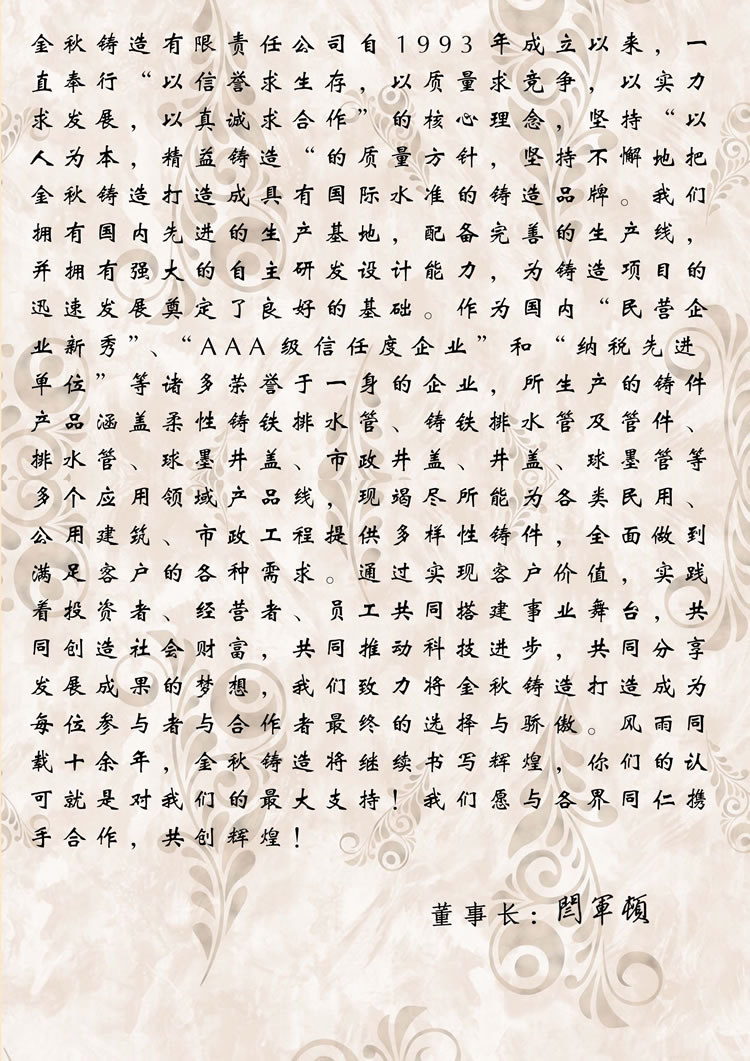 金秋铸造有限责任公司自1993年成立以来，一
直奉行“以信誉求生存，以质量求竞争，以实力
求发展，以真诚求合作”的核心理念，坚持“以
人为本，精益铸造“的质量方针，坚持不懈地把
金秋铸造打造成具有国际水准的铸造品牌。我们
拥有国内先进的生产基地，配备完善的生产线，
并拥有强大的自主研发设计能力，为铸造项目的
迅速发展奠定了良好的基础。作为国内“民营企
业新秀”、“AAA级信任度企业”和“纳税先进
单位”等诸多荣誉于一身的企业，所生产的铸件
产品涵盖柔性铸铁排水管、铸铁排水管及管件、
排水管、球墨井盖、市政井盖、井盖、球墨管等
多个应用领域产品线，现竭尽所能为各类民用、
公用建筑、市政工程提供多样性铸件，全面做到
满足客户的各种需求。通过实现客户价值，实践
着投资者、经营者、员工共同搭建事业舞台，共
同创造社会财富，共同推动科技进步，共同分享
发展成果的梦想，我们致力将金秋铸造打造成为
每位参与者与合作者最终的选择与骄傲。风雨同
载十余年，金秋铸造将继续书写辉煌，你们的认
可就是对我们的最大支持！我们愿与各界同仁携
手合作，共创辉煌！
董事长：閆軍頓